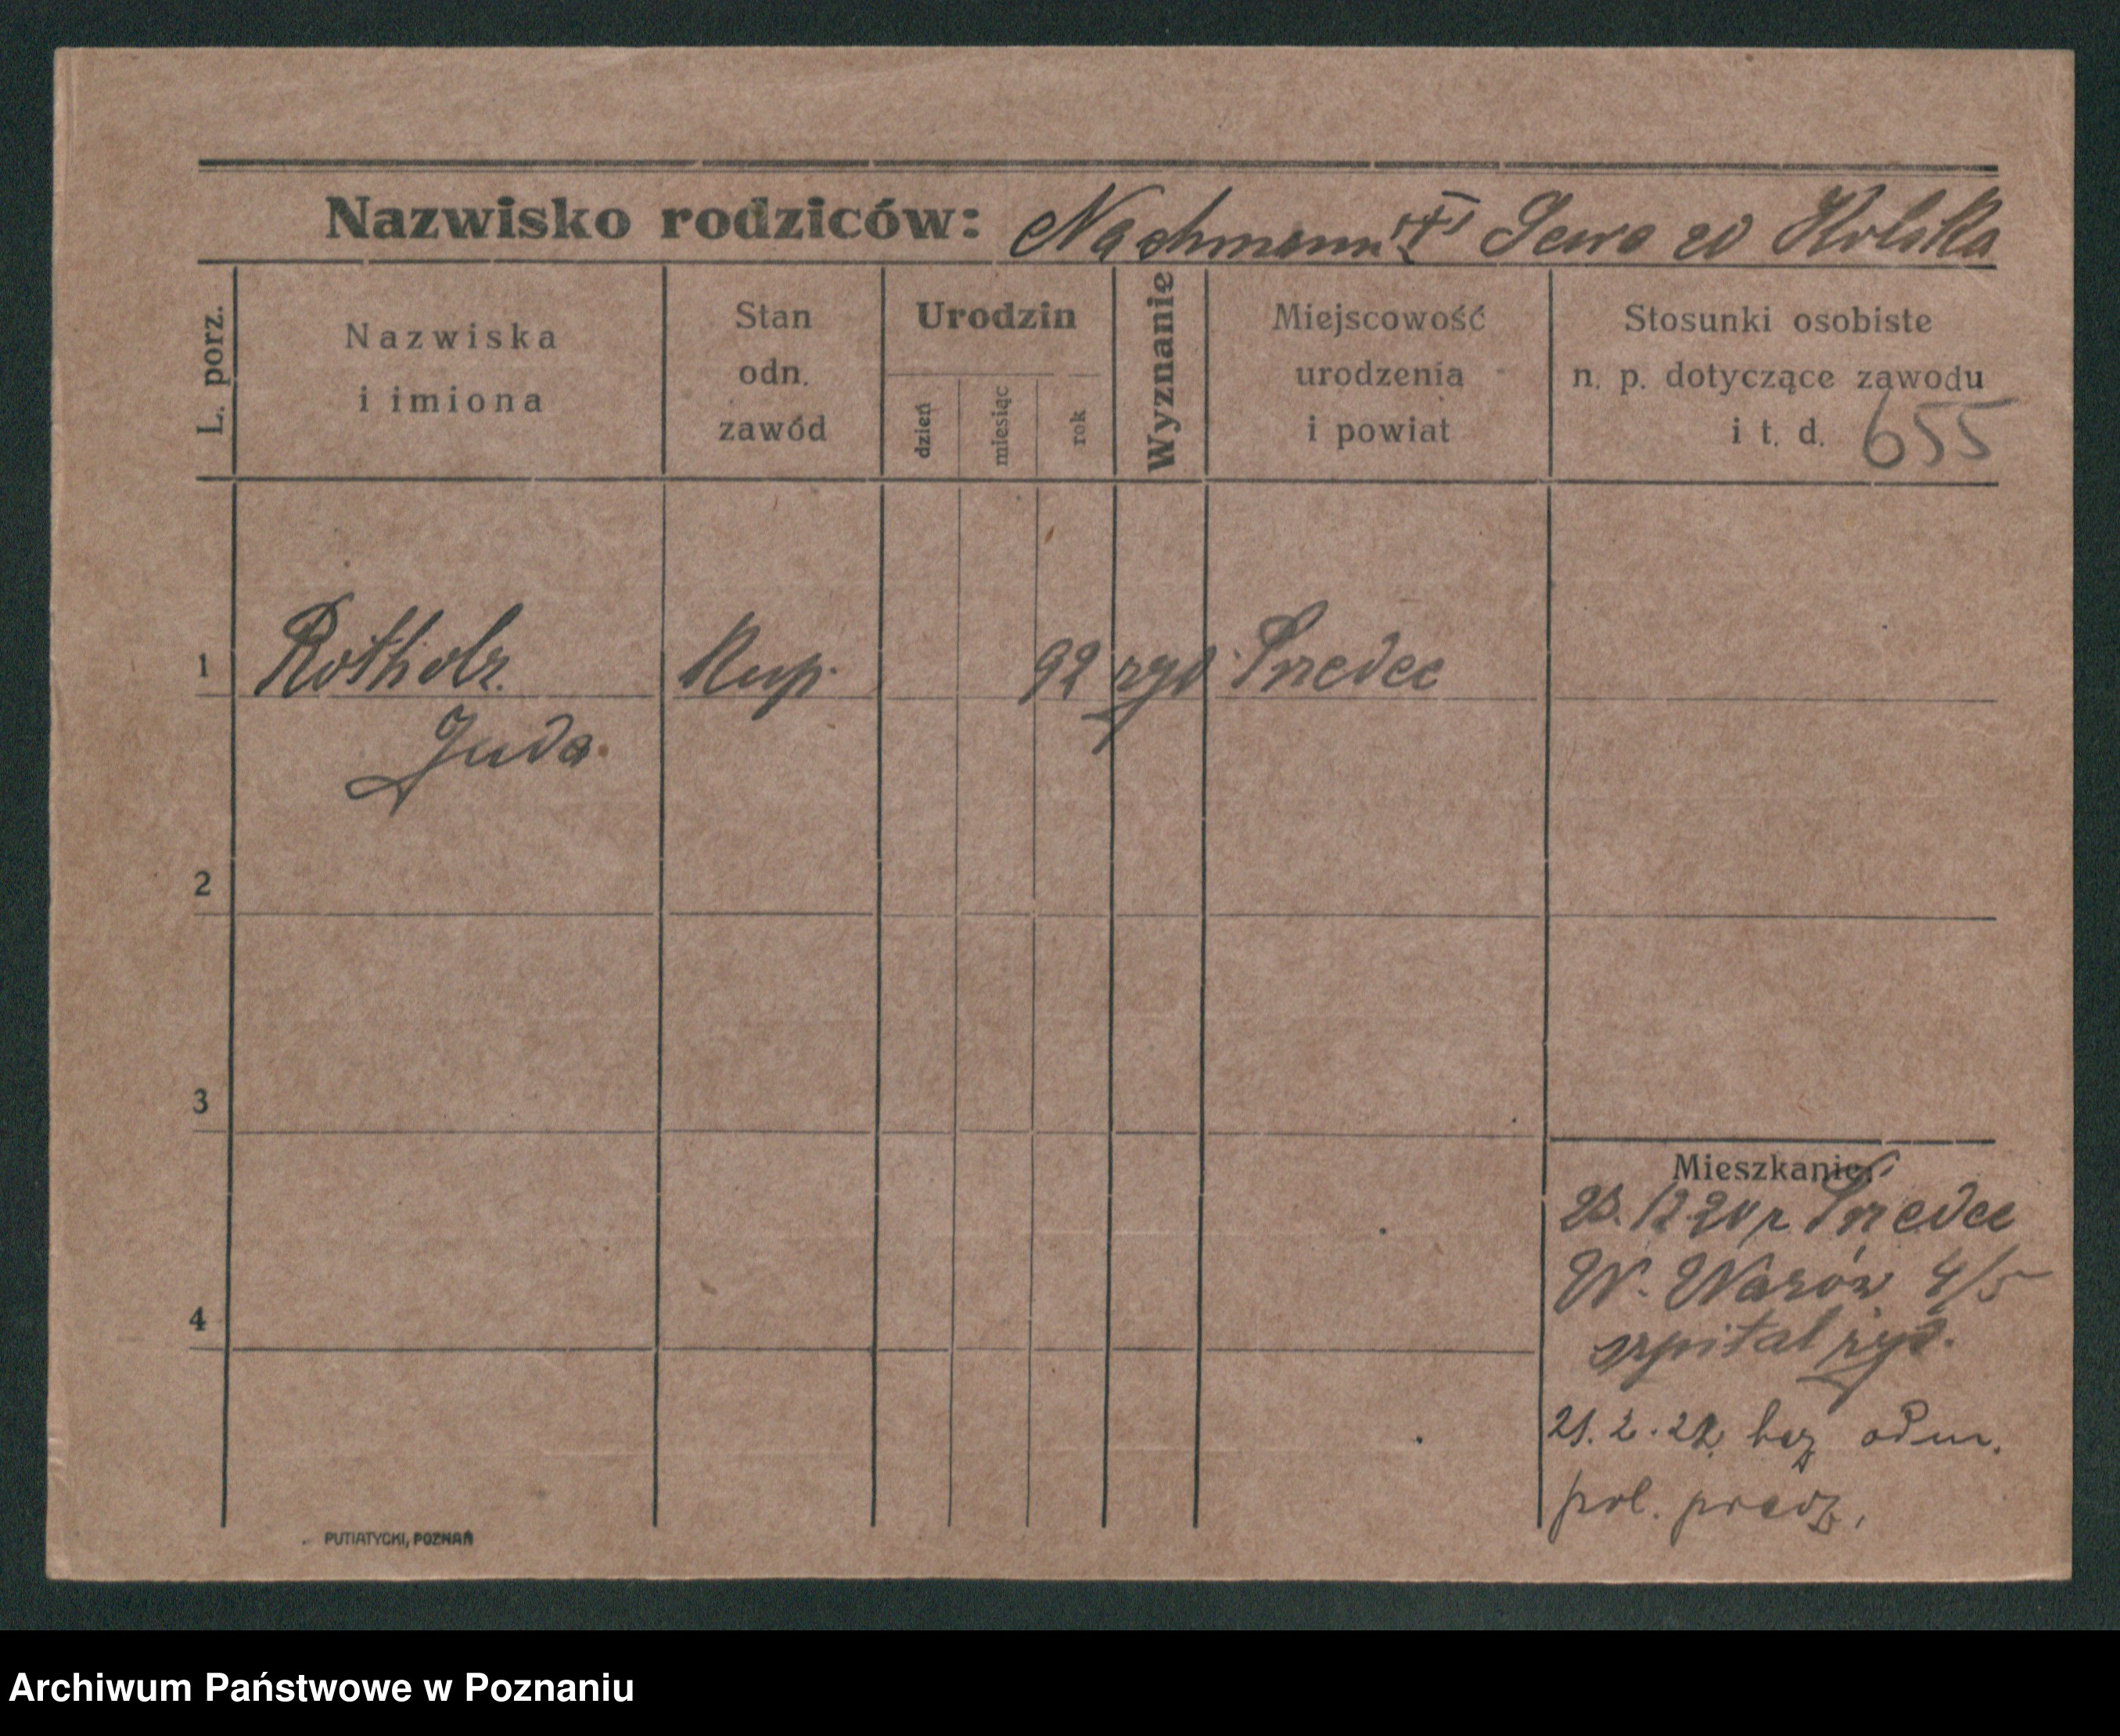 Nazwisko rodziców: Nachmann i Sewa w Kolska
L. porz.
Nazwiska
i imiona
Stan
odn.
zawód
Urodzin
dzień
miesiąc
rok
Wyznanie
Miejscowość
urodzenia
i powiat
Stosunki osobiste
n. p. dotyczące zawodu
i t. d. 655
1 Rotholz Kup. 92 żyd Przedec
Juda
2
3
4
Mieszkanie:
23.12.20 r. Przedec
W. 4/5
szpital żyd.
21. 2. 22. bez odm.
pol.
PUTIATYCKI, POZNAŃ
Archiwum Państwowe w Poznaniu